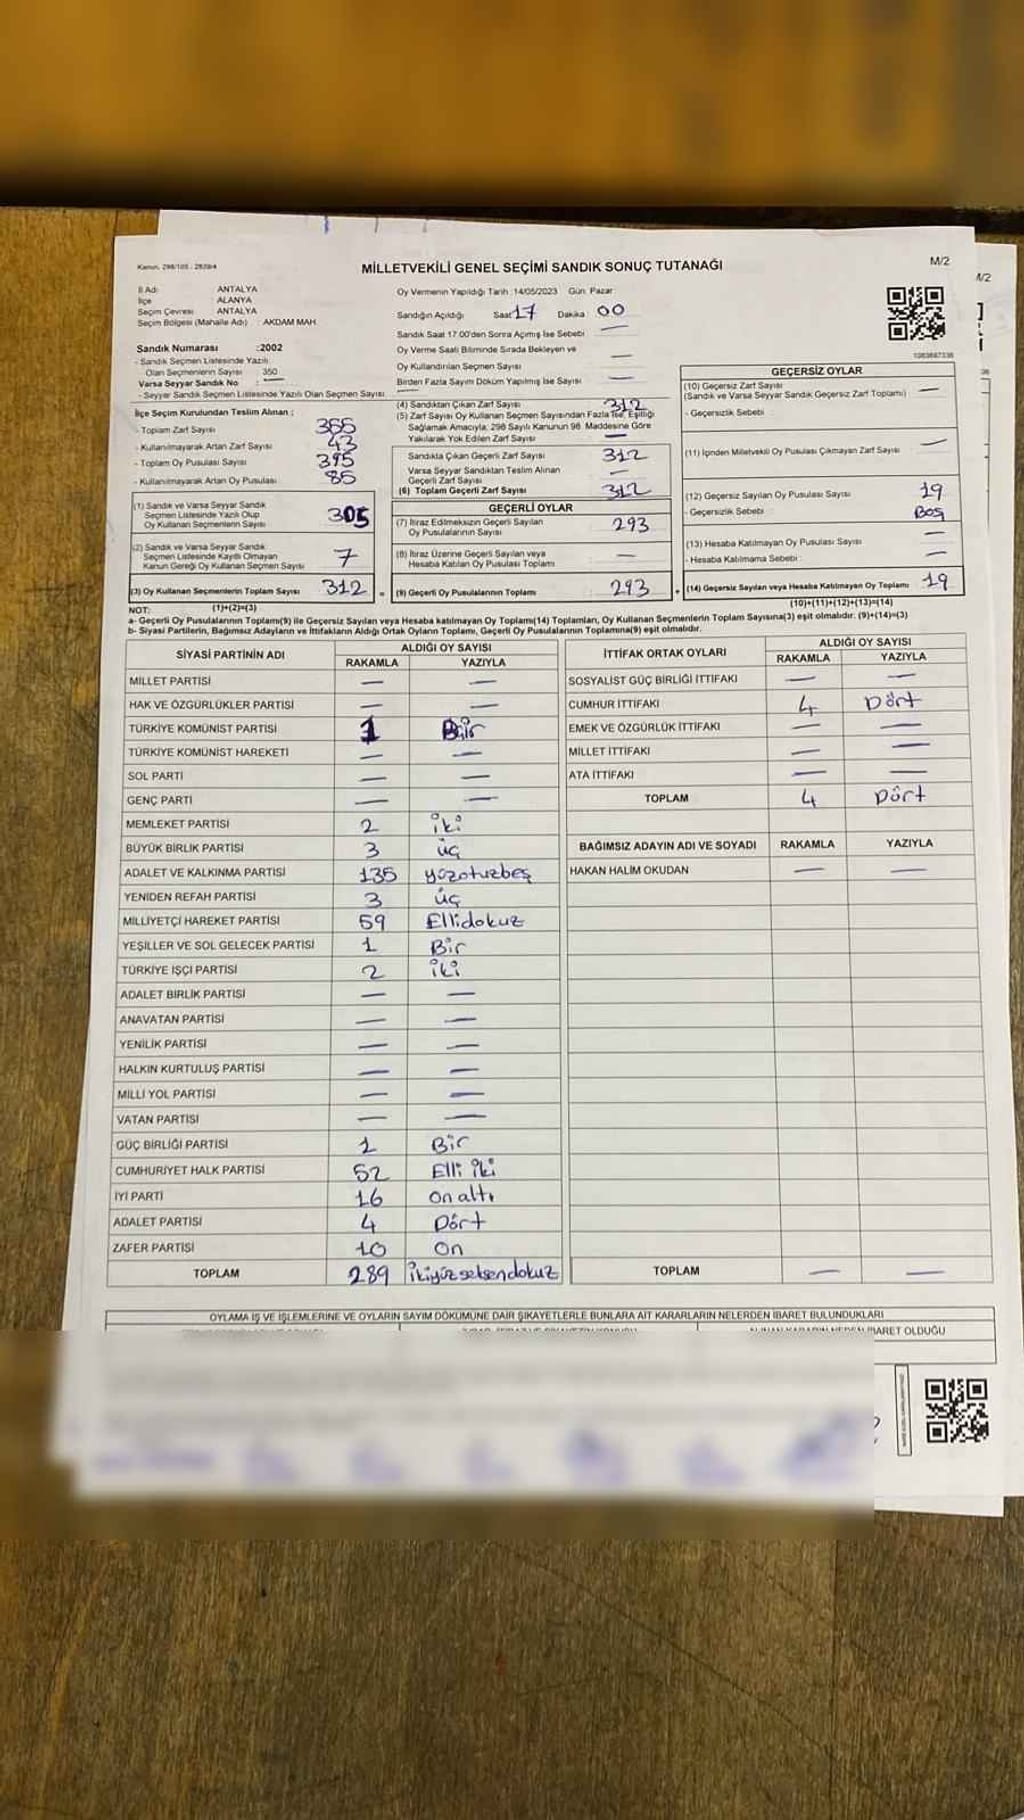 Kanun, 298/105 - 2839/4
MİLLETVEKİLİ GENEL SEÇİMİ SANDIK SONUÇ TUTANAĞI
M/2
İl Adı ANTALYA
İlçe : ALANYA
Seçim Çevresi ANTALYA
Seçim Bölgesi (Mahalle Adı) : AKDAM MAH.
Oy Vermenin Yapıldığı Tarih :14/05/2023 Gün: Pazar
Sandığın Açıldığı Saat 17 Dakika 00
Sandık Saat 17.00'den Sonra Açımış İse Sebebi —
Oy Verme Saati Bitiminde Sırada Bekleyen ve
Oy Kullandırılan Seçmen Sayısı —
Birden Fazla Sayım Döküm Yapılmış İse Sayısı —
Sandık Numarası :2002
- Sandık Seçmen Listesinde Yazılı
Olan Seçmenlerin Sayısı 350
Varsa Seyyar Sandık No : —
- Seyyar Sandık Seçmen Listesinde Yazılı Olan Seçmen Sayısı —
İlçe Seçim Kurulundan Teslim Alınan ;
- Toplam Zarf Sayısı 355
- Kullanılmayarak Artan Zarf Sayısı 43
- Toplam Oy Pusulası Sayısı 395
- Kullanılmayarak Artan Oy Pusulası 85
(1) Sandık ve Varsa Seyyar Sandık
Seçmen Listesinde Yazılı Olup
Oy Kullanan Seçmenlerin Sayısı 305
(2) Sandık ve Varsa Seyyar Sandık
Seçmen Listesinde Kayıtlı Olmayan
Kanun Gereği Oy Kullanan Seçmen Sayısı 7
(3) Oy Kullanan Seçmenlerin Toplam Sayısı 312
(1)+(2)=(3)
(4) Sandıktan Çıkan Zarf Sayısı 312
(5) Zarf Sayısı Oy Kullanan Seçmen Sayısından Fazla İse, Eşitliği
Sağlamak Amacıyla; 298 Sayılı Kanunun 98. Maddesine Göre
Yakılarak Yok Edilen Zarf Sayısı —
Sandıkta Çıkan Geçerli Zarf Sayısı 312
Varsa Seyyar Sandıktan Teslim Alınan
Geçerli Zarf Sayısı —
(6) Toplam Geçerli Zarf Sayısı 312
GEÇERLİ OYLAR
(7) İtiraz Edilmeksizin Geçerli Sayılan
Oy Pusulalarının Sayısı 293
(8) İtiraz Üzerine Geçerli Sayılan veya
Hesaba Katılan Oy Pusulası Toplamı —
(9) Geçerli Oy Pusulalarının Toplamı 293
1083687336
GEÇERSİZ OYLAR
(10) Geçersiz Zarf Sayısı —
(Sandık ve Varsa Seyyar Sandık Geçersiz Zarf Toplamı)
- Geçersizlik Sebebi :
(11) İçinden Milletvekili Oy Pusulası Çıkmayan Zarf Sayısı —
(12) Geçersiz Sayılan Oy Pusulası Sayısı 19
- Geçersizlik Sebebi : Boş
(13) Hesaba Katılmayan Oy Pusulası Sayısı —
- Hesaba Katılmama Sebebi : —
(14) Geçersiz Sayılan veya Hesaba Katılmayan Oy Toplamı 19
(10)+(11)+(12)+(13)=(14)
NOT:
a- Geçerli Oy Pusulalarının Toplamı(9) ile Geçersiz Sayılan veya Hesaba Katılmayan Oy Toplamı(14) Toplamları, Oy Kullanan Seçmenlerin Toplam Sayısına(3) eşit olmalıdır. (9)+(14)=(3)
b- Siyasi Partilerin, Bağımsız Adayların ve İttifakların Aldığı Ortak Oyların Toplamı, Geçerli Oy Pusulalarının Toplamına(9) eşit olmalıdır.
SİYASİ PARTİNİN ADI ALDIĞI OY SAYISI
RAKAMLA YAZIYLA
MİLLET PARTİSİ — —
HAK VE ÖZGÜRLÜKLER PARTİSİ — —
TÜRKİYE KOMÜNİST PARTİSİ 1 Bir
TÜRKİYE KOMÜNİST HAREKETİ — —
SOL PARTİ — —
GENÇ PARTİ — —
MEMLEKET PARTİSİ 2 iki
BÜYÜK BİRLİK PARTİSİ 3 üç
ADALET VE KALKINMA PARTİSİ 135 yüzotuzbeş
YENİDEN REFAH PARTİSİ 3 üç
MİLLİYETÇİ HAREKET PARTİSİ 59 Ellidokuz
YEŞİLLER VE SOL GELECEK PARTİSİ 1 Bir
TÜRKİYE İŞÇİ PARTİSİ 2 iki
ADALET BİRLİK PARTİSİ — —
ANAVATAN PARTİSİ — —
YENİLİK PARTİSİ — —
HALKIN KURTULUŞ PARTİSİ — —
MİLLİ YOL PARTİSİ — —
VATAN PARTİSİ — —
GÜÇ BİRLİĞİ PARTİSİ 1 Bir
CUMHURİYET HALK PARTİSİ 52 Elli iki
İYİ PARTİ 16 On altı
ADALET PARTİSİ 4 Dört
ZAFER PARTİSİ 10 On
TOPLAM 289 ikiyüzseksendokuz
İTTİFAK ORTAK OYLARI ALDIĞI OY SAYISI
RAKAMLA YAZIYLA
SOSYALİST GÜÇ BİRLİĞİ İTTİFAKI — —
CUMHUR İTTİFAKI 4 Dört
EMEK VE ÖZGÜRLÜK İTTİFAKI — —
MİLLET İTTİFAKI — —
ATA İTTİFAKI — —
TOPLAM 4 Dört
BAĞIMSIZ ADAYIN ADI VE SOYADI RAKAMLA YAZIYLA
HAKAN HALİM OKUDAN — —
TOPLAM — —
OYLAMA İŞ VE İŞLEMLERİNE VE OYLARIN SAYIM DÖKÜMÜNE DAİR ŞİKAYETLERLE BUNLARA AİT KARARLARIN NELERDEN İBARET BULUNDUKLARI
İBARET OLDUĞU